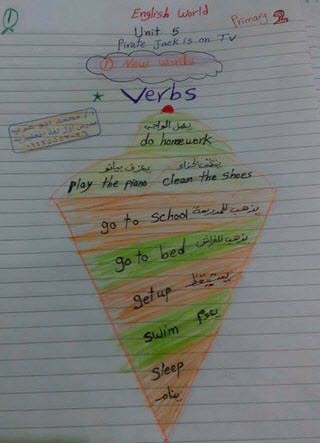 ①
English World
Primary 2
Unit 5
Pirate Jack is on TV
① New words
* Verbs
يعمل الواجب
do homework
يعزف بيانو ينظف الحذاء
play the piano clean the shoes
go to school يذهب للمدرسة
go to bed يذهب للفراش
get up يستيقظ
swim يعوم
sleep
ينام